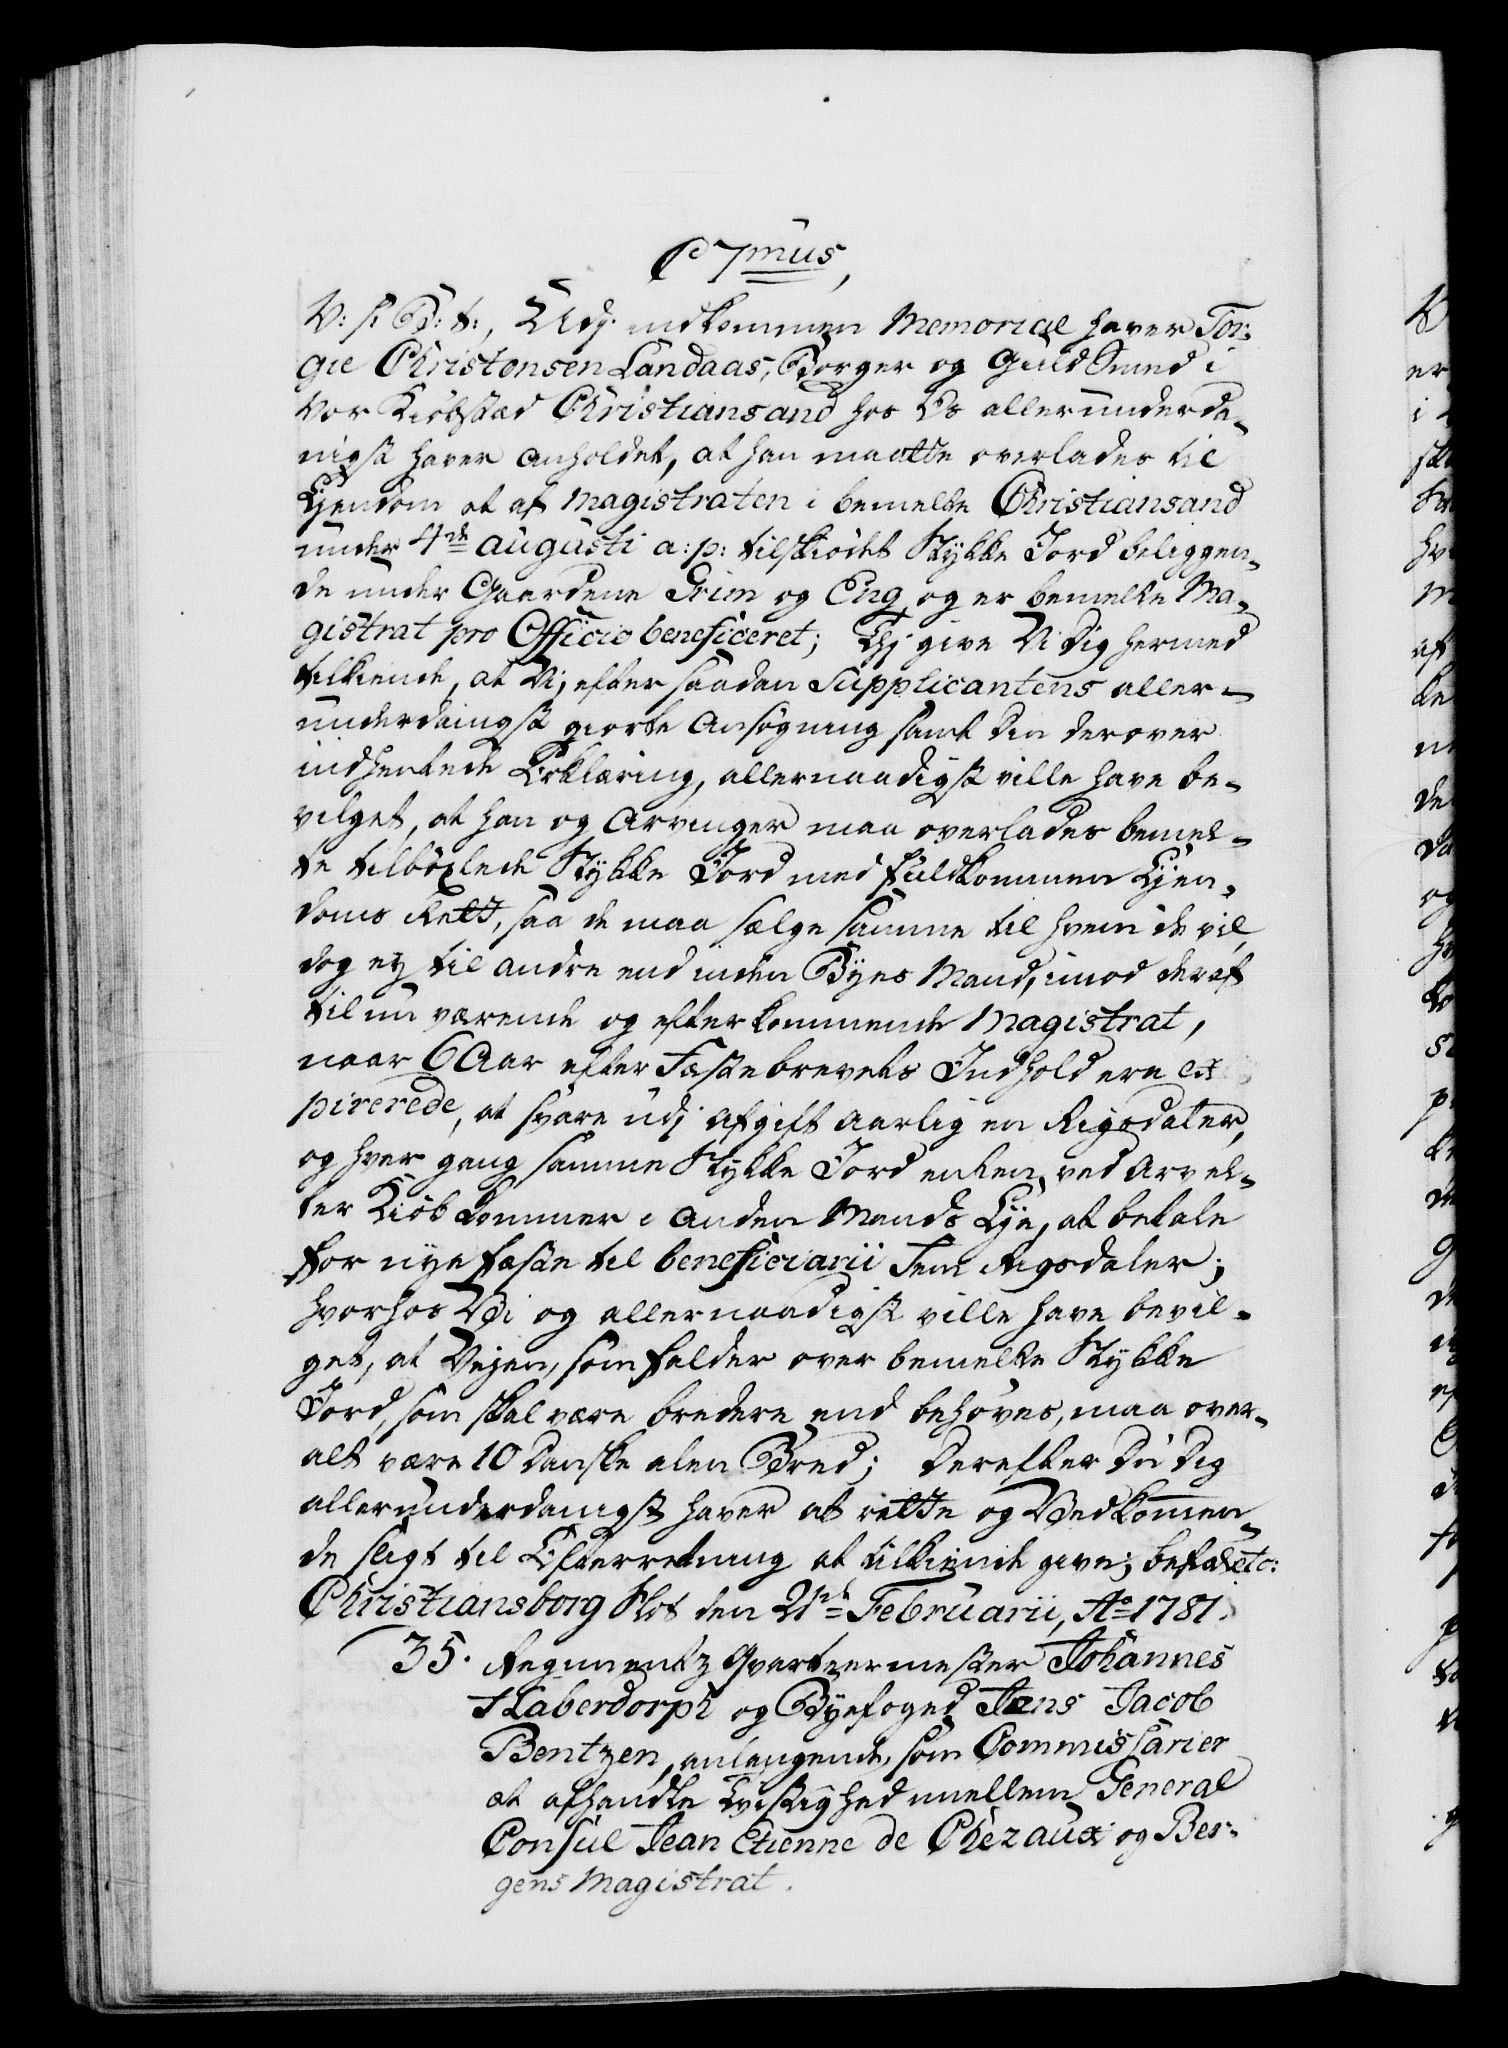 C 7mus,
V: s: G: t:, Udj indkommen Memorial haver Tor-
gie Christensen Landaas, Borger og Guldsmed i
Vor Kiöbstæd Christiansand hos Os allerunderda-
nigst haver anholdet, at han maatte overlades til
Ejendom et af Magistraten i bemelte Christiansand
under 4de Augusti a: p: tilskiödet Stykke Jord beliggen-
de under Gaardene Grim og Eng, og er bemelte Ma-
gistrat pro Officio beneficeret; Thj give Vi Dig hermed
tilkiende, at Vi, efter saadan Supplicantens aller-
underdanigst giorte Ansögning samt Din derover
indhentede Erklæring, allernaadigst ville have be-
vilget, at han og Arvinger maa overlades bemel-
te tilböxlede Stykke Jord med fuldkommen Ejen-
doms Rett, saa de maa sælge samme til hvem de vil,
dog ej til andre end inden Byes Mand, imod deraf
til nu værende og efterkommende Magistrat,
naar 6 Aar efter Fæstebrevets Indhold ere ex-
pirerede, at svare udj afgift aarlig en Rigsdaler,
og hver gang samme Stykke Jord enten ved Arv el-
ler Kiöb kommer i anden Mands Eje, at betale
for nye fæste til beneficiarii Fem Rigsdaler;
hvorhos Vi og allernaadigst ville have bevil-
get, at Vejen, som falder over bemelte Stykke
Jord, som skal være bredere end behöves, maa over-
alt være 10 Danske alen Bred; Derefter Du Dig
allerunderdanigst haver at rette og Vedkommen-
de sligt til Efterretning at tilkiende give; befal: etc:
Christiansborg Slot den 21de Februarii, Ao 1781.
35. Regimentz Qvarteermester Johannes
Haberdorph og Byefoged Jens Jacob
Bentzen, anlangende, som Commissarier
at afhandle Tvistighed mellem General
Consul Jean Etienne de Chezaux og Ber-
gens Magistrat.